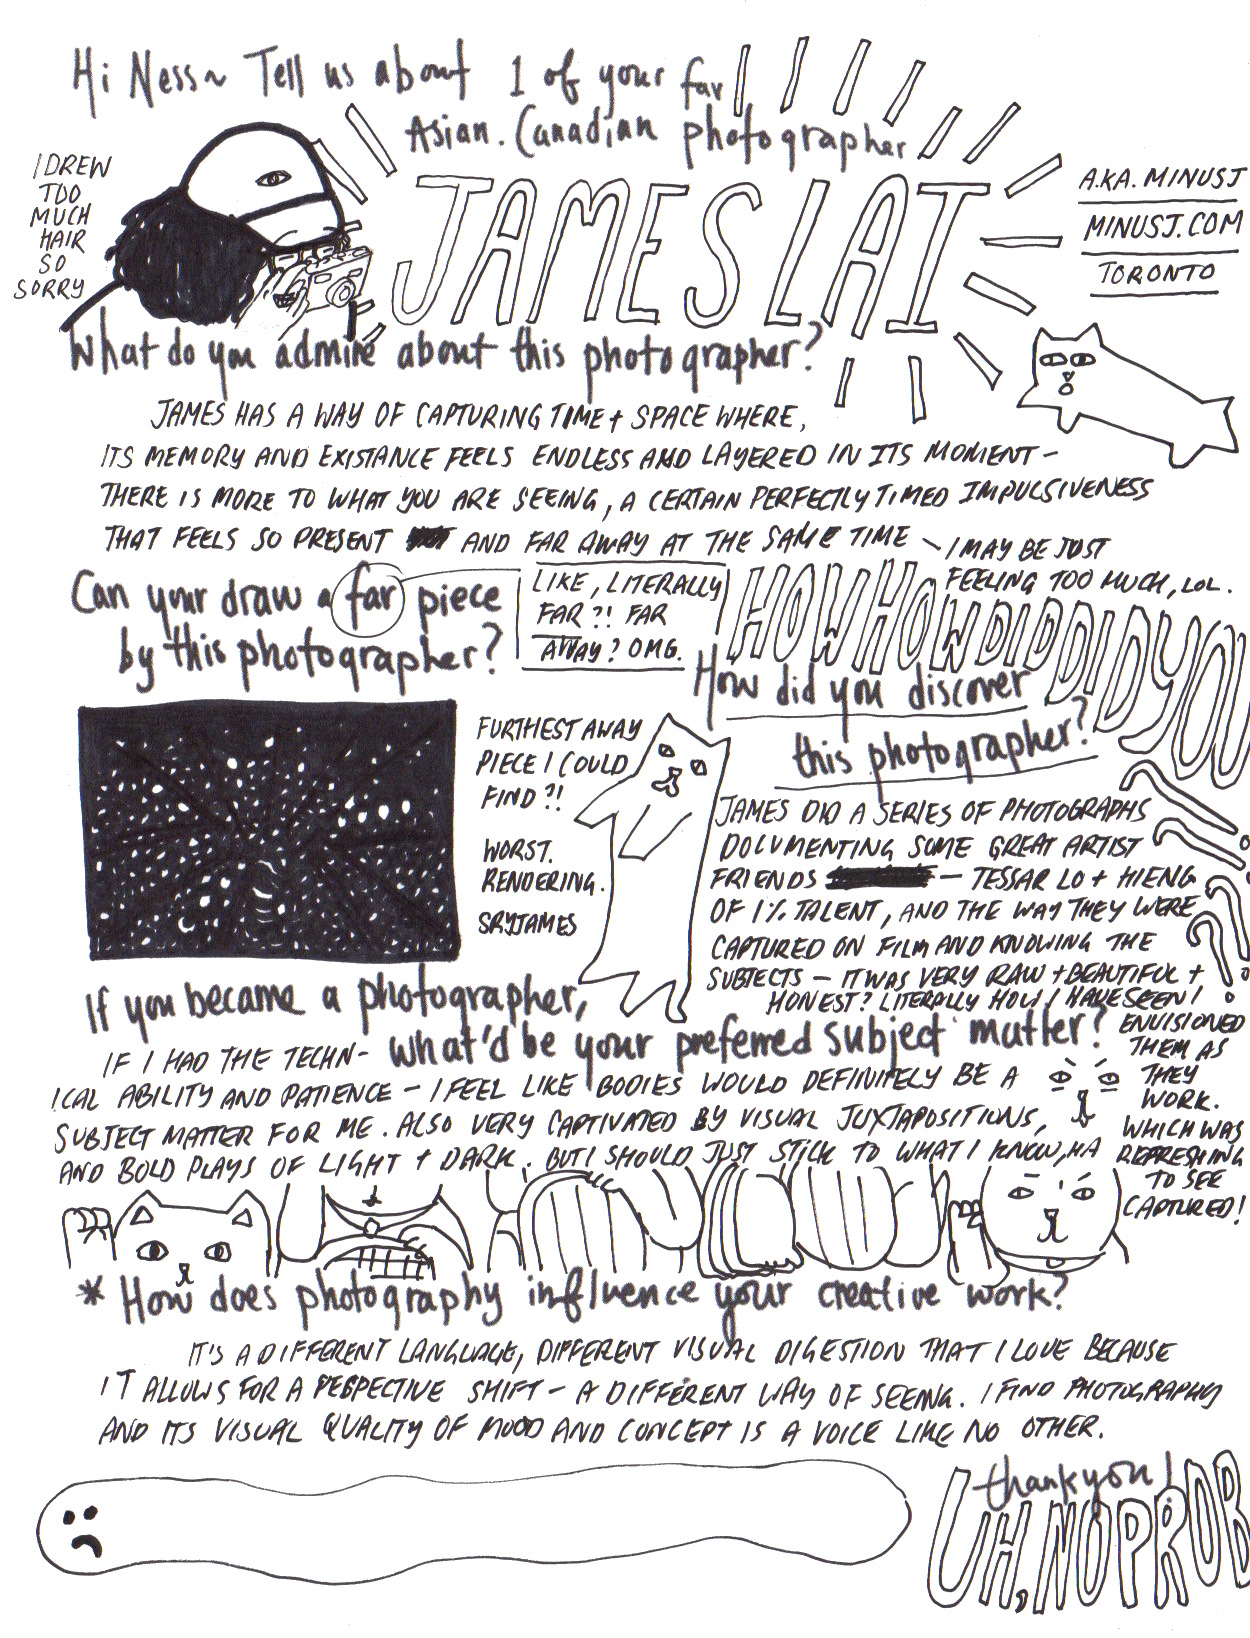 Hi Ness~ Tell us about 1 of your fav
Asian.Canadian photographer
I DREW
TOO
MUCH
HAIR
SO
SORRY
JAMES LAI
A.KA. MINUSJ
MINUSJ.COM
TORONTO
What do you admire about this photographer?
JAMES HAS A WAY OF CAPTURING TIME + SPACE WHERE,
ITS MEMORY AND EXISTANCE FEELS ENDLESS AND LAYERED IN ITS MOMENT –
THERE IS MORE TO WHAT YOU ARE SEEING, A CERTAIN PERFECTLY TIMED IMPULSIVENESS
THAT FEELS SO PRESENT AND FAR AWAY AT THE SAME TIME ~ I MAY BE JUST
FEELING TOO MUCH, LOL.
Can your draw a fav piece
by this photographer?
LIKE, LITERALLY
FAR?! FAR
AWAY? OMG.
FURTHEST AWAY
PIECE I COULD
FIND?!
WORST.
RENDERING.
SRYJAMES
HOW HOW DID DID YOU
How did you discover
this photographer?
JAMES DID A SERIES OF PHOTOGRAPHS
DOCUMENTING SOME GREAT ARTIST
FRIENDS – TESSAR LO + HIENG
OF 1% TALENT, AND THE WAY THEY WERE
CAPTURED ON FILM AND KNOWING THE
SUBJECTS – IT WAS VERY RAW + BEAUTIFUL +
HONEST? LITERALLY HOW I HAVE SEEN /
ENVISIONED
THEM AS
THEY
WORK.
WHICH WAS
REFRESHING
TO SEE
CAPTURED!
If you became a photographer,
what'd be your preferred subject matter?
IF I HAD THE TECHN-
ICAL ABILITY AND PATIENCE – I FEEL LIKE BODIES WOULD DEFINITELY BE A
SUBJECT MATTER FOR ME. ALSO VERY CAPTIVATED BY VISUAL JUXTAPOSITIONS,
AND BOLD PLAYS OF LIGHT + DARK. BUT I SHOULD JUST STICK TO WHAT I KNOW, HA
* How does photography influence your creative work?
IT'S A DIFFERENT LANGUAGE, DIFFERENT VISUAL DIGESTION THAT I LOVE BECAUSE
IT ALLOWS FOR A PERSPECTIVE SHIFT – A DIFFERENT WAY OF SEEING. I FIND PHOTOGRAPHY
AND ITS VISUAL QUALITY OF MOOD AND CONCEPT IS A VOICE LIKE NO OTHER.
thank you!
UH, NO PROB